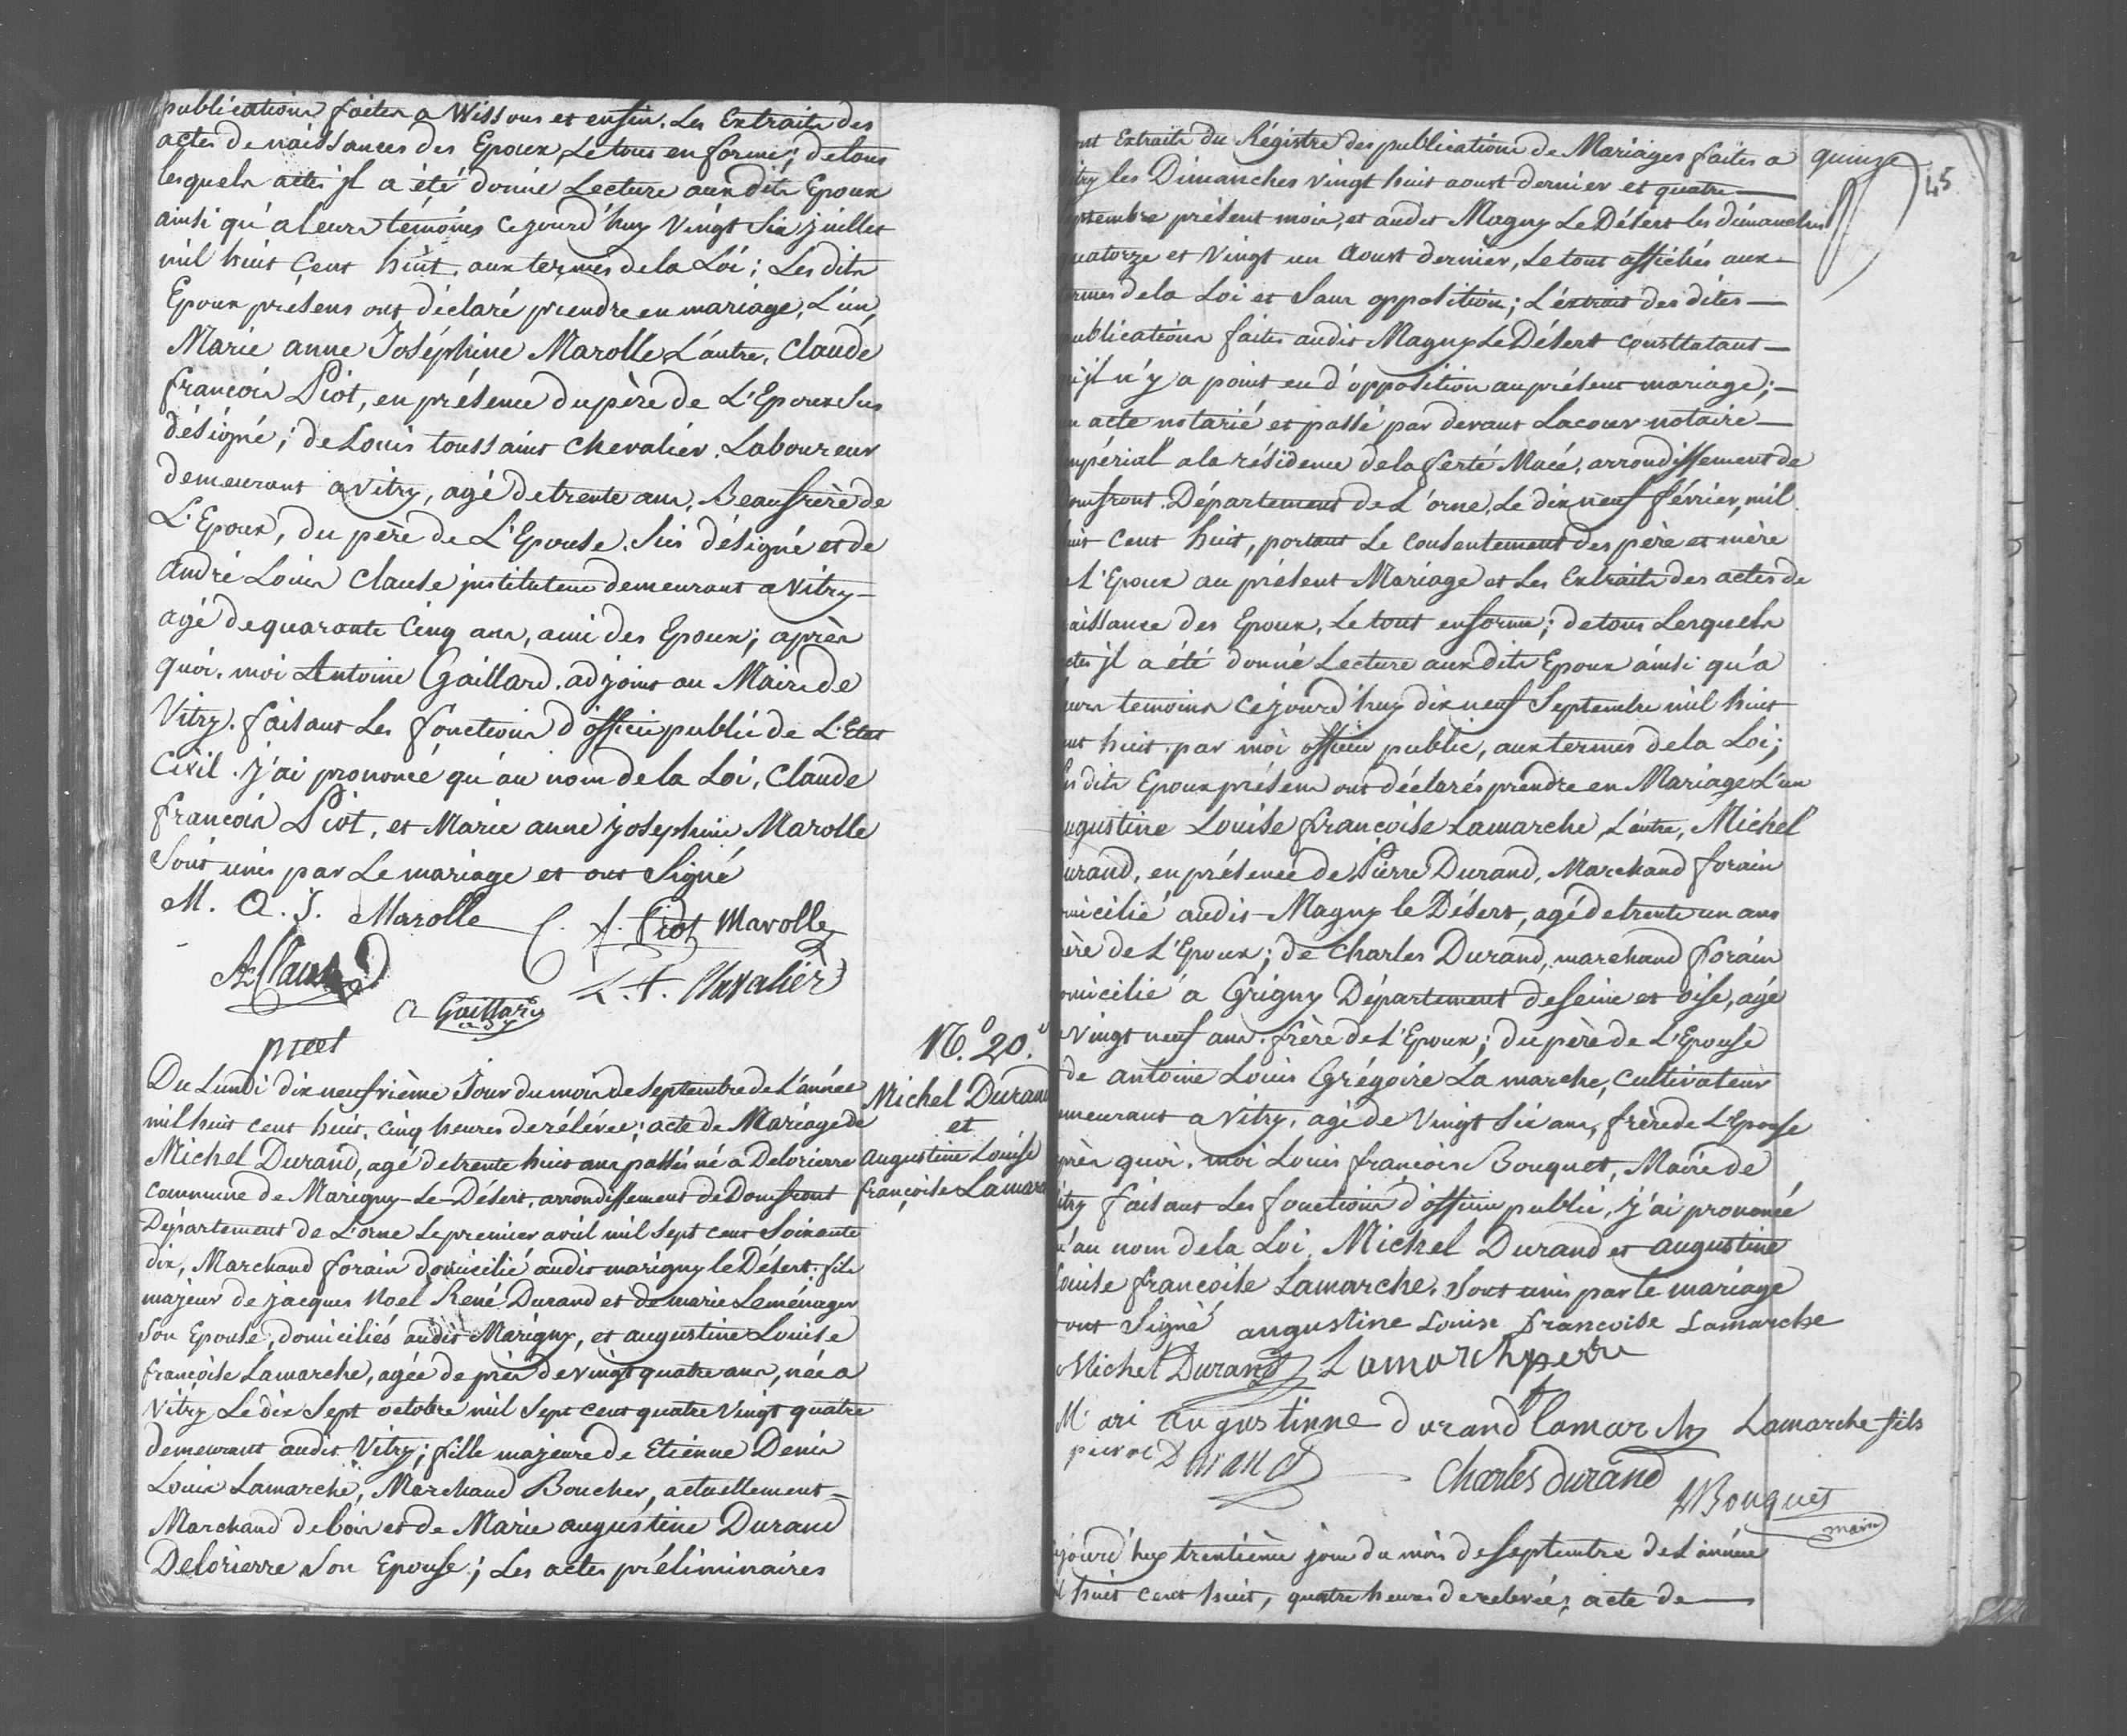 publications faites a Wissous et enfin. Les Extraits des
actes de naissances des Epoux, Le tous en forme; de tous
lesquels actes jl a été donné Lecture aux dits Epoux
ainsi qu'a leurs témoins cejourd'huy Vingt Six juillet
mil huit Cent huit. aux termes de la Loi; Les dits
Epoux présens ont déclaré prendre en mariage, L'un,
Marie anne Joséphine Marolle L'autre, Claude
françois Piot, en présence du père de L'Epoux Sus
désigné; de Louis toussaint Chevalier. Laboureur
demeurant a Vitry, agé de trente ans, Beaufrère de
L'Epoux, du père de L'Epouse. Sus désigné et de
andré Louis Clause jnstituteur demeurant a Vitry
agé de quarante Cinq ans, ami des Epoux; après
quoi. moi Antoine Gaillard. adjoint au Maire de
Vitry. faisant Les fonctions d'officier public de L'Etat
Civil. j'ai prononcé qu'au nom de la Loi, Claude
françois Piot, et Marie anne josephine Marolle
Sont unis par Le mariage et ont Signé
M. A. J. Marolle C. f. Piot Marolle
L. T. Chevalier
A Gaillard
adj
piot
N.° 20.
Michel Durand
et
augustine Louise
françoise Lamarc
Du Lundi dix neufvième Jour du mois de Septembre de L'année
mil huit cent huit, cinq heures de rélévée; acte de Mariage de
Michel Durand, agé de trente huit ans passés né a Delorierre
Commune de Marigny-Le-Désert, arrondissement de Domfront
Département de L'orne Le premier avril mil Sept cent Soixante
dix, Marchand forain domicilié audit marigny le Désert. fils
majeur de jacques Noel René Durand et de marie Leménager
Son Epouse, domiciliés audit Marigny, et augustine Louise
françoise Lamarche, agée de près de vingt quatre ans, née a
Vitry Le dix Sept octobre mil Sept Cent quatre Vingt quatre
demeurant audit Vitry; fille majeure de Etienne Denis
Louis Lamarche, Marchand Boucher, actuellement
Marchand de bois et de Marie augustine Durand
Delorierre Son Epouse; Les actes préliminaires
quinze
45
ont Extraits du Régistre des publications de Mariages faites a
itry les Dimanches vingt huit aoust dernier et quatre
eptembre présent mois, et audit Magny Le Désert les dimanches
quatorze et Vingt un Aoust dernier, Le tout affichés aux
ermes de la Loi et Sans opposition; L'éxtrait des dites
publications faites audit Magny Le Désert Consttatant
qu'jl n'y a point eu d'opposition au présent mariage;
n acte notarié et passé par devant Lacour notaire
mpérial a la résidence de la ferté Macé, arrondissement de
omfront. Département de L'orne, Le dix neuf février, mil
uit Cent huit, portant Le Consentement des père et mère
L'Epoux au présent Mariage et Les Extraits des actes de
aissance des Epoux, Le tout en forme; de tous Lesquels
ctes jl a été donné Lecture aux dits Epoux ainsi qu'a
eurs temoins Cejourd'huy dix neuf Septembre mil huit
ent huit. par moi officier public, aux termes de la Loi;
es dits Epoux présens ont déclarés prendre en Mariage L'un
ugustine Louise françoise Lamarche, L'autre, Michel
urand, en présence de Pierre Durand, Marchand forain
micilié audit Magny le Désert, agé de trente un ans
rère de L'Epoux; de Charles Durand, marchand forain
omicilié a Grigny Département de Seine et oise, agé
Vingt neuf ans. frère de L'Epoux; du père de L'Epouse
de antoine Louis Grégoire La marche, Cultivateur
emeurant a Vitry, agé de Vingt Six ans, frère de L'Epouse
près quoi. moi Louis françois Bouquet, Maire de
itry faisant Les fonctions d'officier public, j'ai prononcé
u'au nom de la Loi, Michel Durand et augustine
ouise françoise Lamarche. Sont unis par le mariage
ont Signé augustine Louise françoise Lamarche
Michel Durand Lamarch perre
Mari augustinne durand lamarch Lamarche fils
pierre Durand Charles Durand
Bouquet
maire
ejourd'huy trentième jour du mois de Septembre de L'année
il huit cent huit, quatre heures de relevées acte de